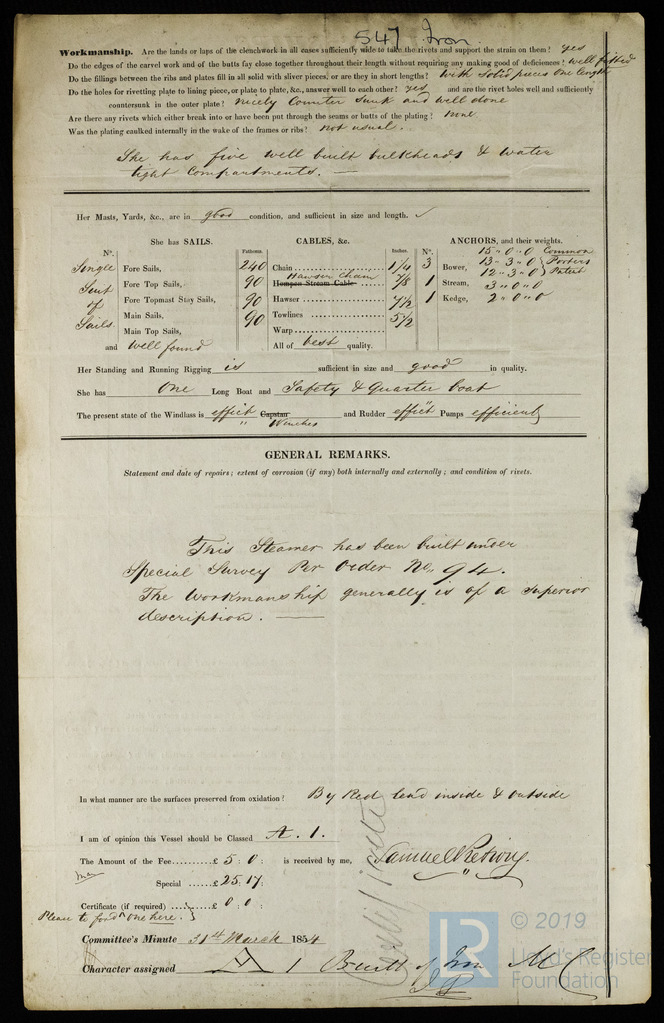 547 Iron
Workmanship. Are the lands or laps of the clenchwork in all cases sufficiently wide to take the rivets and support the strain on them? yes
Do the edges of the carvel work and of the butts fay close together throughout their length without requiring any making good of deficiences? well fitted
Do the fillings between the ribs and plates fill in all solid with sliver pieces, or are they in short lengths? With solid pieces one length
Do the holes for rivetting plate to lining piece, or plate to plate, &c., answer well to each other? yes and are the rivet holes well and sufficiently
countersunk in the outer plate? nicely Counter Sunk and well done
Are there any rivets which either break into or have been put through the seams or butts of the plating? none
Was the plating caulked internally in the wake of the frames or ribs? not usual.
She has five well built bulkheads & water
tight Compartments. —
Her Masts, Yards, &c., are in good condition, and sufficient in size and length. ✓
She has SAILS. CABLES, &c. ANCHORS, and their weights.
No. Fathoms. Inches. No. 15 " 0 " 0 Common
Single Fore Sails, 240 Chain 1/4 3 Bower, 13 " 3 " 0 Porters
Suit Fore Top Sails, 90 Hempen Stream Cable Hawser Chain 7/8 12 " 3 " 0 Patent
of Fore Topmast Stay Sails, 90 Hawser 7 1/2 1 Stream, 3 " 0 " 0
Sails Main Sails, 90 Towlines 5 1/2 1 Kedge, 2 " 0 " 0
Main Top Sails, Warp
and well found All of best quality.
Her Standing and Running Rigging is sufficient in size and good in quality.
She has One Long Boat and Safety & Quarter boat
The present state of the Windlass is effict Capstan Winches and Rudder effict Pumps efficient
GENERAL REMARKS.
Statement and date of repairs; extent of corrosion (if any) both internally and externally; and condition of rivets.
This Steamer has been built under
Special Survey Per Order No. 94.
The Workmanship generally is of a superior
description. —
In what manner are the surfaces preserved from oxidation? By Red lead inside & outside
I am of opinion this Vessel should be Classed A. 1.
The Amount of the Fee £ 5 : 0 : is received by me,
Special £ 25.17 :
Certificate (if required) £ 0 : 0 :
Please to forwd one here.
Committee's Minute 31st March 1854
Character assigned A 1 Built of Iron
© 2019
LR
Lloyd's Register
Foundation